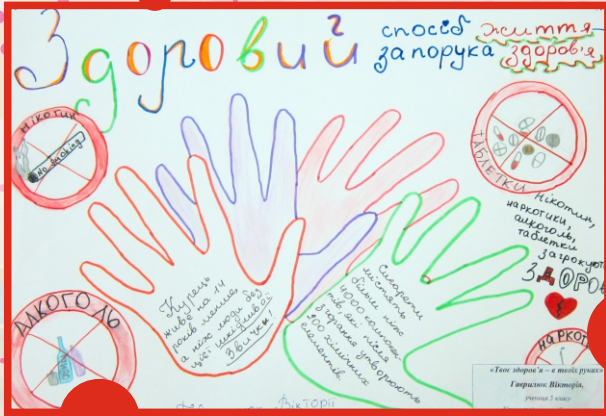 Здоровий
спосіб життя-
запорука здоров'я
Нікотин
No Smoking
ТАБЛЕТКИ
Нікотин,
наркотики,
алкоголь,
таблетки
загрожують
ЗДОРОВ
АЛКОГОЛЬ
Курець
живе на 14
років менше,
а ніж люди без
цієї шкідливої
звички!
Сигарети
містять
більш ніж
4000 компонен
тів, які після
згорання утворюють
500 хімічних
елементів
НАРКОТ
«Твоє здоров'я – в твоїх руках»
Гаврилюк Вікторія,
учениця 5 класу
Вікторії